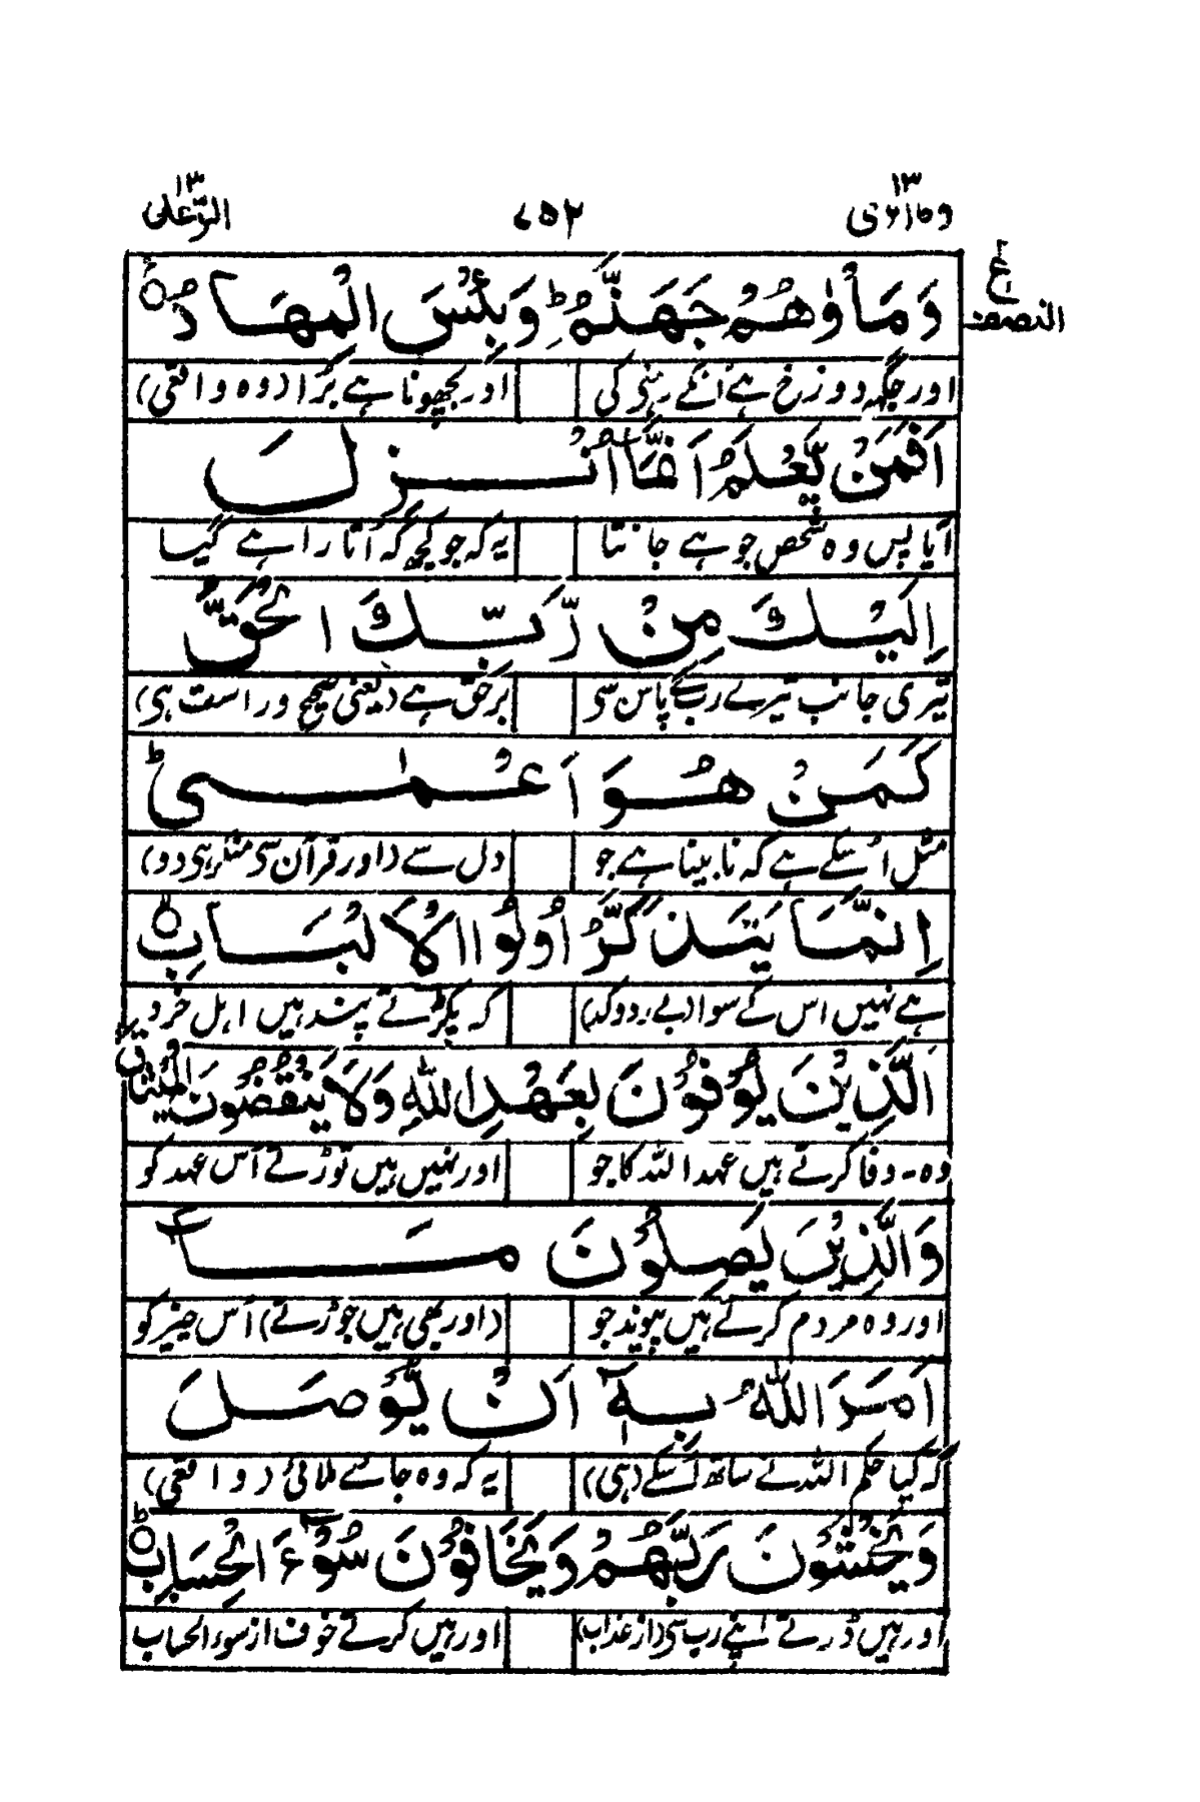 وما ابرئ ۱۳ ۷۵۲ الرعد ۱۳
ع النصف
وَمَأْوٰىهُمْ جَهَنَّمُ ؕ وَبِئْسَ الْمِهَادُ
اور جگہ دوزخ ہے انکے رہنے کی اور بچھونا ہے بُرا (وہ واقعی)
اَفَمَنْ يَّعْلَمُ اَنَّمَاۤ اُنْزِلَ
آیا پس وہ شخص جو ہے جانتا یہ کہ جو کچھ کہ اُتارا ہے گیا
اِلَيْكَ مِنْ رَّبِّكَ الْحَقُّ
تیری جانب تیرے رب کے پاس سی برحق ہے (یعنی صحیح وراست ہی)
كَمَنْ هُوَ اَعْمٰى ؕ
مثل اُسکے ہے کہ نابینا ہے جو دل سے (اور قرآن سی منکر ہی دو)
اِنَّمَا يَتَذَكَّرُ اُولُوا الْاَلْبَابِ
ہے نہیں اس کے سوا (بے ردوکد) کہ پکڑتے پند ہیں اہل خرد
الَّذِيْنَ يُوْفُوْنَ بِعَهْدِ اللّٰهِ وَلَا يَنْقُضُوْنَ الْمِيْثَاقَ
وہ۔ وفا کرتے ہیں عہد اللہ کا جو اور نہیں ہیں توڑتے اُس عہد کو
وَالَّذِيْنَ يَصِلُوْنَ مَاۤ
اور وہ مردم کرتے ہیں پیوند جو (اور بھی ہیں جوڑتے) اُس چیز کو
اَمَرَ اللّٰهُ بِهٖۤ اَنْ يُّوْصَلَ
کہ کیا حکم اللہ نے ساتھ اُسکے (ہی) یہ کہ وہ جائے ملائی (واقعی)
وَيَخْشَوْنَ رَبَّهُمْ وَيَخَافُوْنَ سُوْٓءَ الْحِسَابِ ؕ
اور ہیں ڈرتے اپنے رب سی (از عذاب) اور ہیں کرتے خوف از سوء الحساب